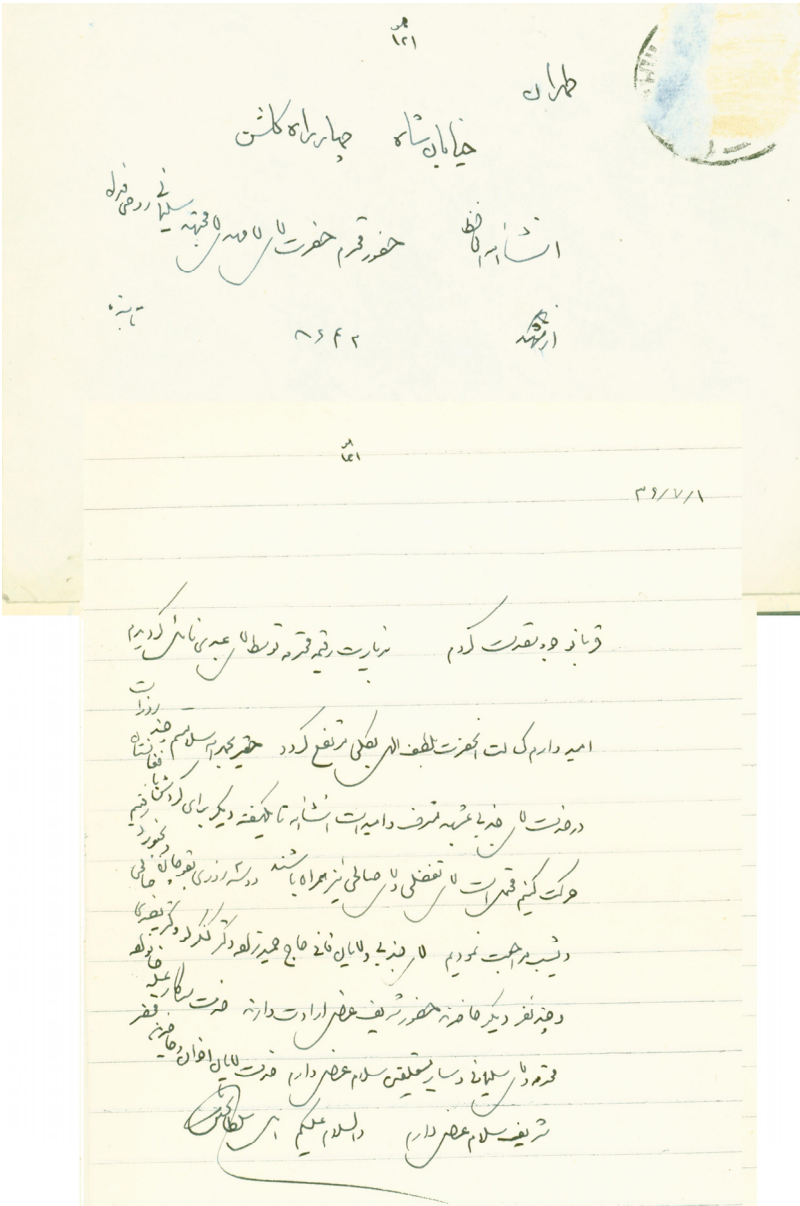 ۱۲۱
طهران
خیابان شاه چهارراه گلشن
انشاءاله الحافظ حضور محترم حضرت آقای مجتهد سلیمانی روحی فداه
از مشهد ۸۶۴۲ تابنده
۱۲۱
۳۶/۷/۱
قربان وجود مقدست گردم بزیارت رقیمه محترمه توسط آقای عبدی نائل گردیدم
امید دارم کسالت آنحضرت بلطف الهی بکلی مرتفع گردد حقیر بحمداله سلامتم چند روز است
در خدمت آقای جذبی بمشهد مشرف و امید است انشاءاله تا یکهفته دیگر برای گردش بافغانستان
حرکت کنیم محتمل است آقای تفضلی و آقای صالحی نیز همراه باشند دو سه روزی بقوچان و بجنورد رفتیم
دیشب مراجعت نمودیم آقای جذبی و آقایان حاج دکتر
و چند نفر دیگر حاضرند حضور شریف عرض ارادت دارند خدمت سرکار علیه خانواده
محترمه و آقای سلیمانی و سایر متعلقین سلام عرض دارم خدمت آقایان اخوان و حاضرین محضر
شریف سلام عرض دارم والسلام علیکم سلطانحسین